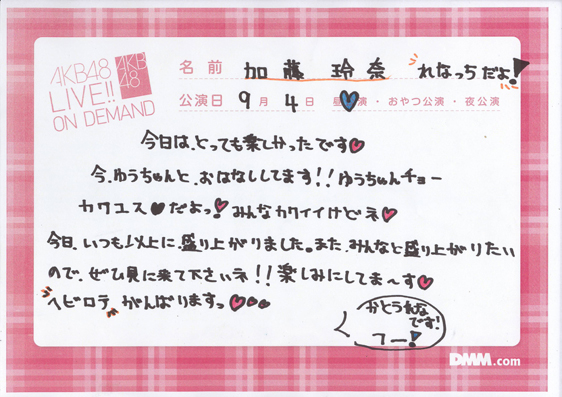 AKB48
LIVE!!
ON DEMAND
AKB
48
名前 加藤 玲奈 れなっちだよ!
公演日 9月4日 昼公演・おやつ公演・夜公演
今日は、とっても楽しかったです♥
今、ゆうちゃんと、おはなししてます!!ゆうちゃんチョー
カワユス♥だよっ!みんなカワイイけどネ♥
今日、いつも以上に、盛り上がりました。また、みんなと盛り上がりたい
ので、ぜひ見に来て下さいネ!!楽しみにしてま〜す♥
ヘビロテ がんばりますっ♥●●
かとうれな
です!
フー!
DMM.com